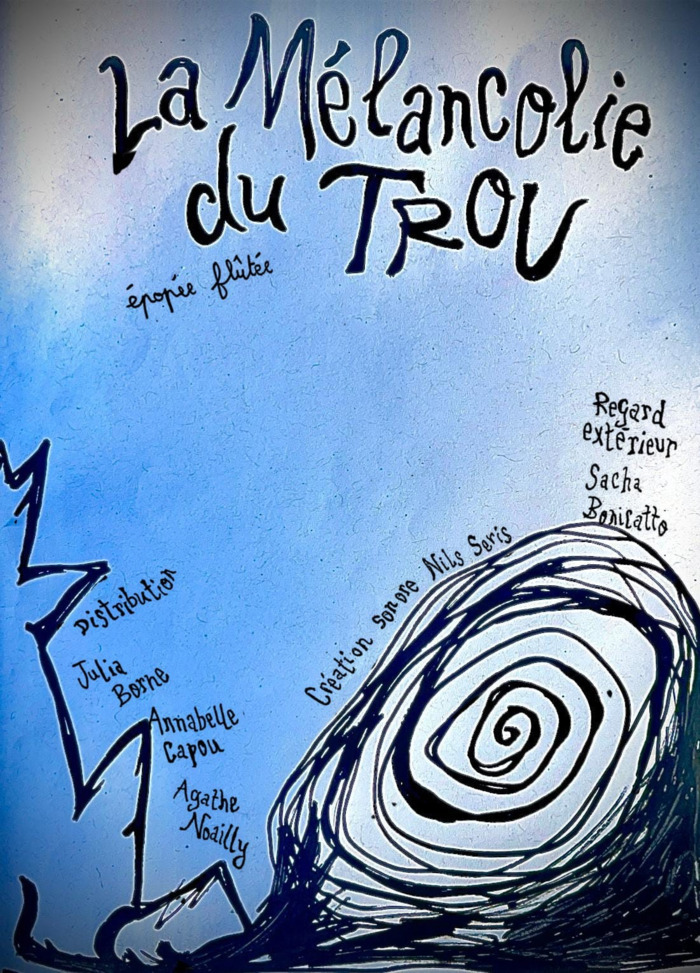 La Mélancolie
du TROU
épopée flûtée
Regard
extérieur
Sacha
Bonicatto
Création sonore Nils Seris
Distribution
Julia
Borne
Annabelle
Capou
Agathe
Noailly